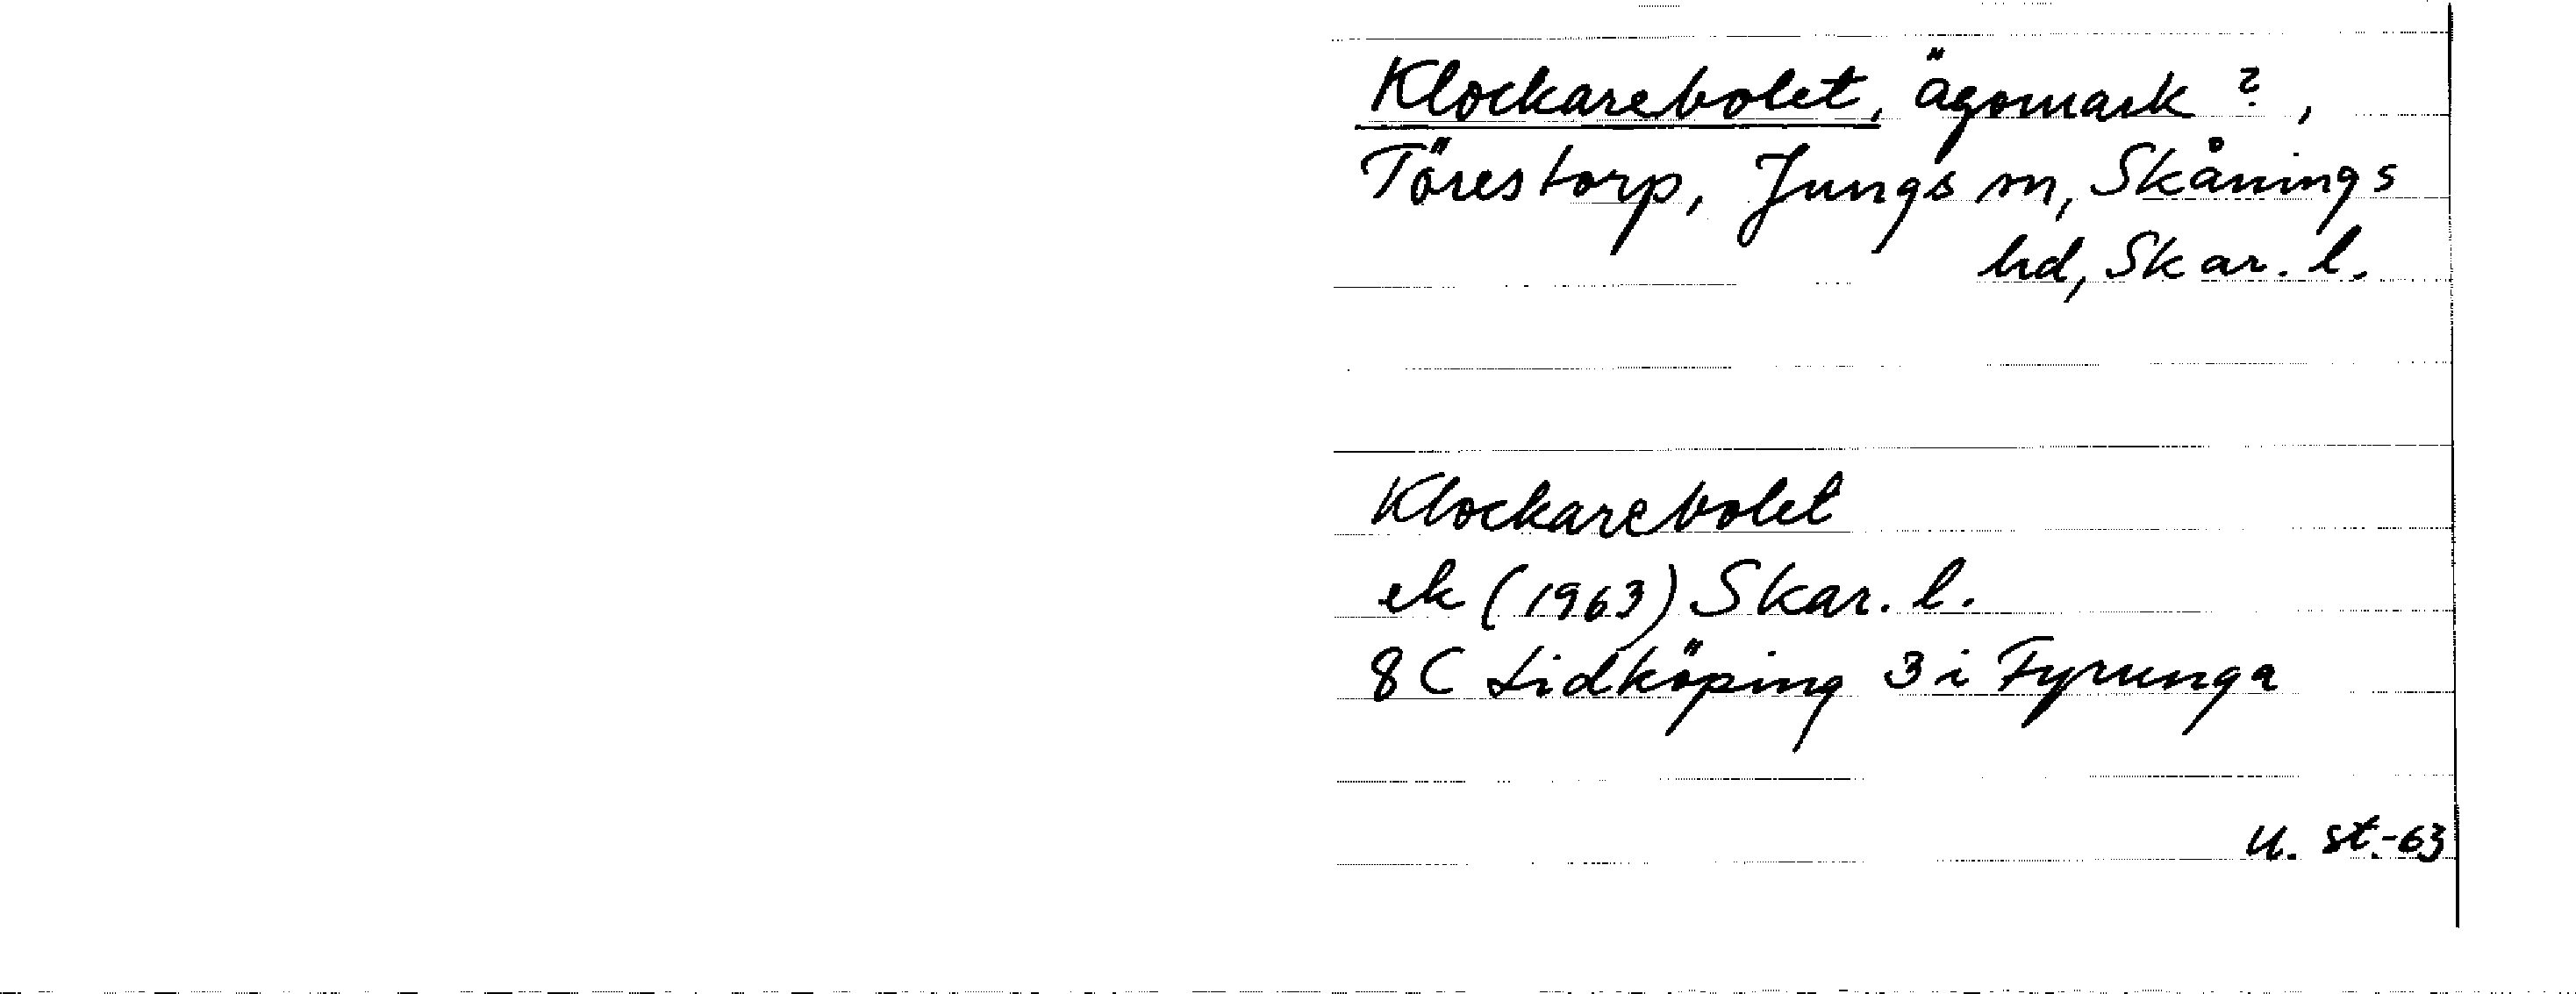 Klockarebolet, ägomark?,
Törestorp, Jungs sn, Skånings
hd, Skar. l.
Klockarebolet
ek (1963) Skar. l.
8 C Lidköping 3 i Fyrunga
U. st.-63